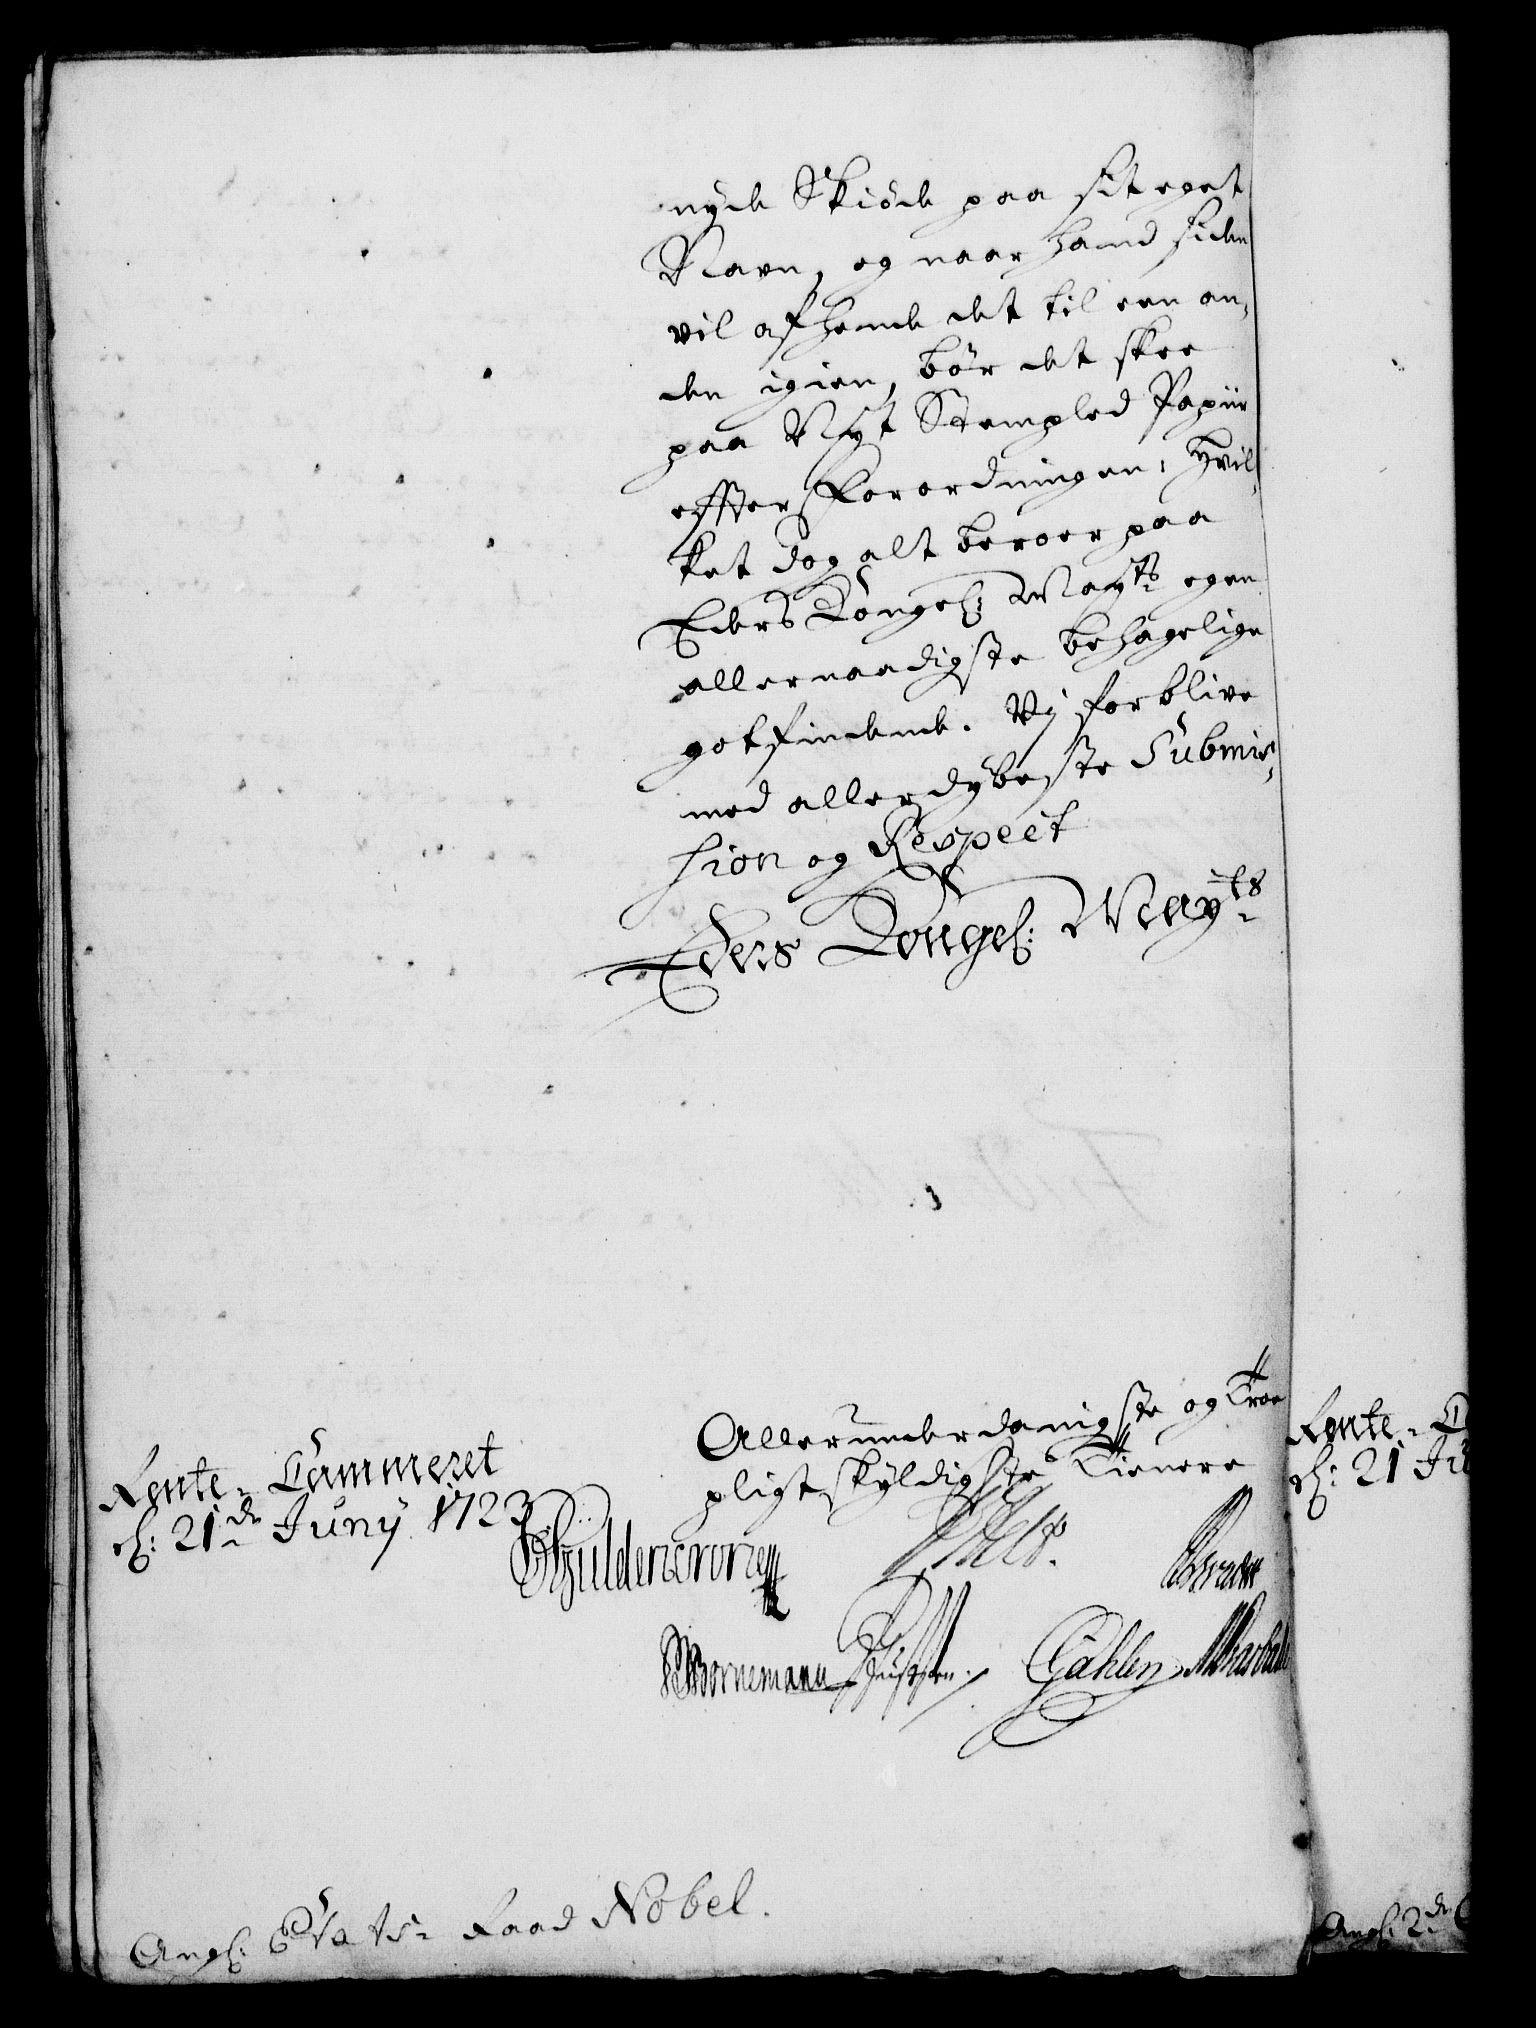 nyde Skiöde paa sit eget
Navn, og naar hand siden
vil afhende det til een an,
den igien, bör det skee
paa Nyt Stempled Papiir
effter Forordningen; Hvil,
ket dog alt beroer paa
Eders Kongel: Mayts egen
allernaadigste behagelige
gotfindende. Vj forblive
med allerdybeste Submis,
sion og Respect
Eders Kongel: Mayts
Allerunderdanigste og Troe
pligtskyldigste Tienere
Rente-Cammeret
d: 21de Juny 1723
Güldencrone
Bornemann
Gählen
Angl: Etats-Raad Nobel.
Rente-C
d: 21 Ju
Angl: 2de